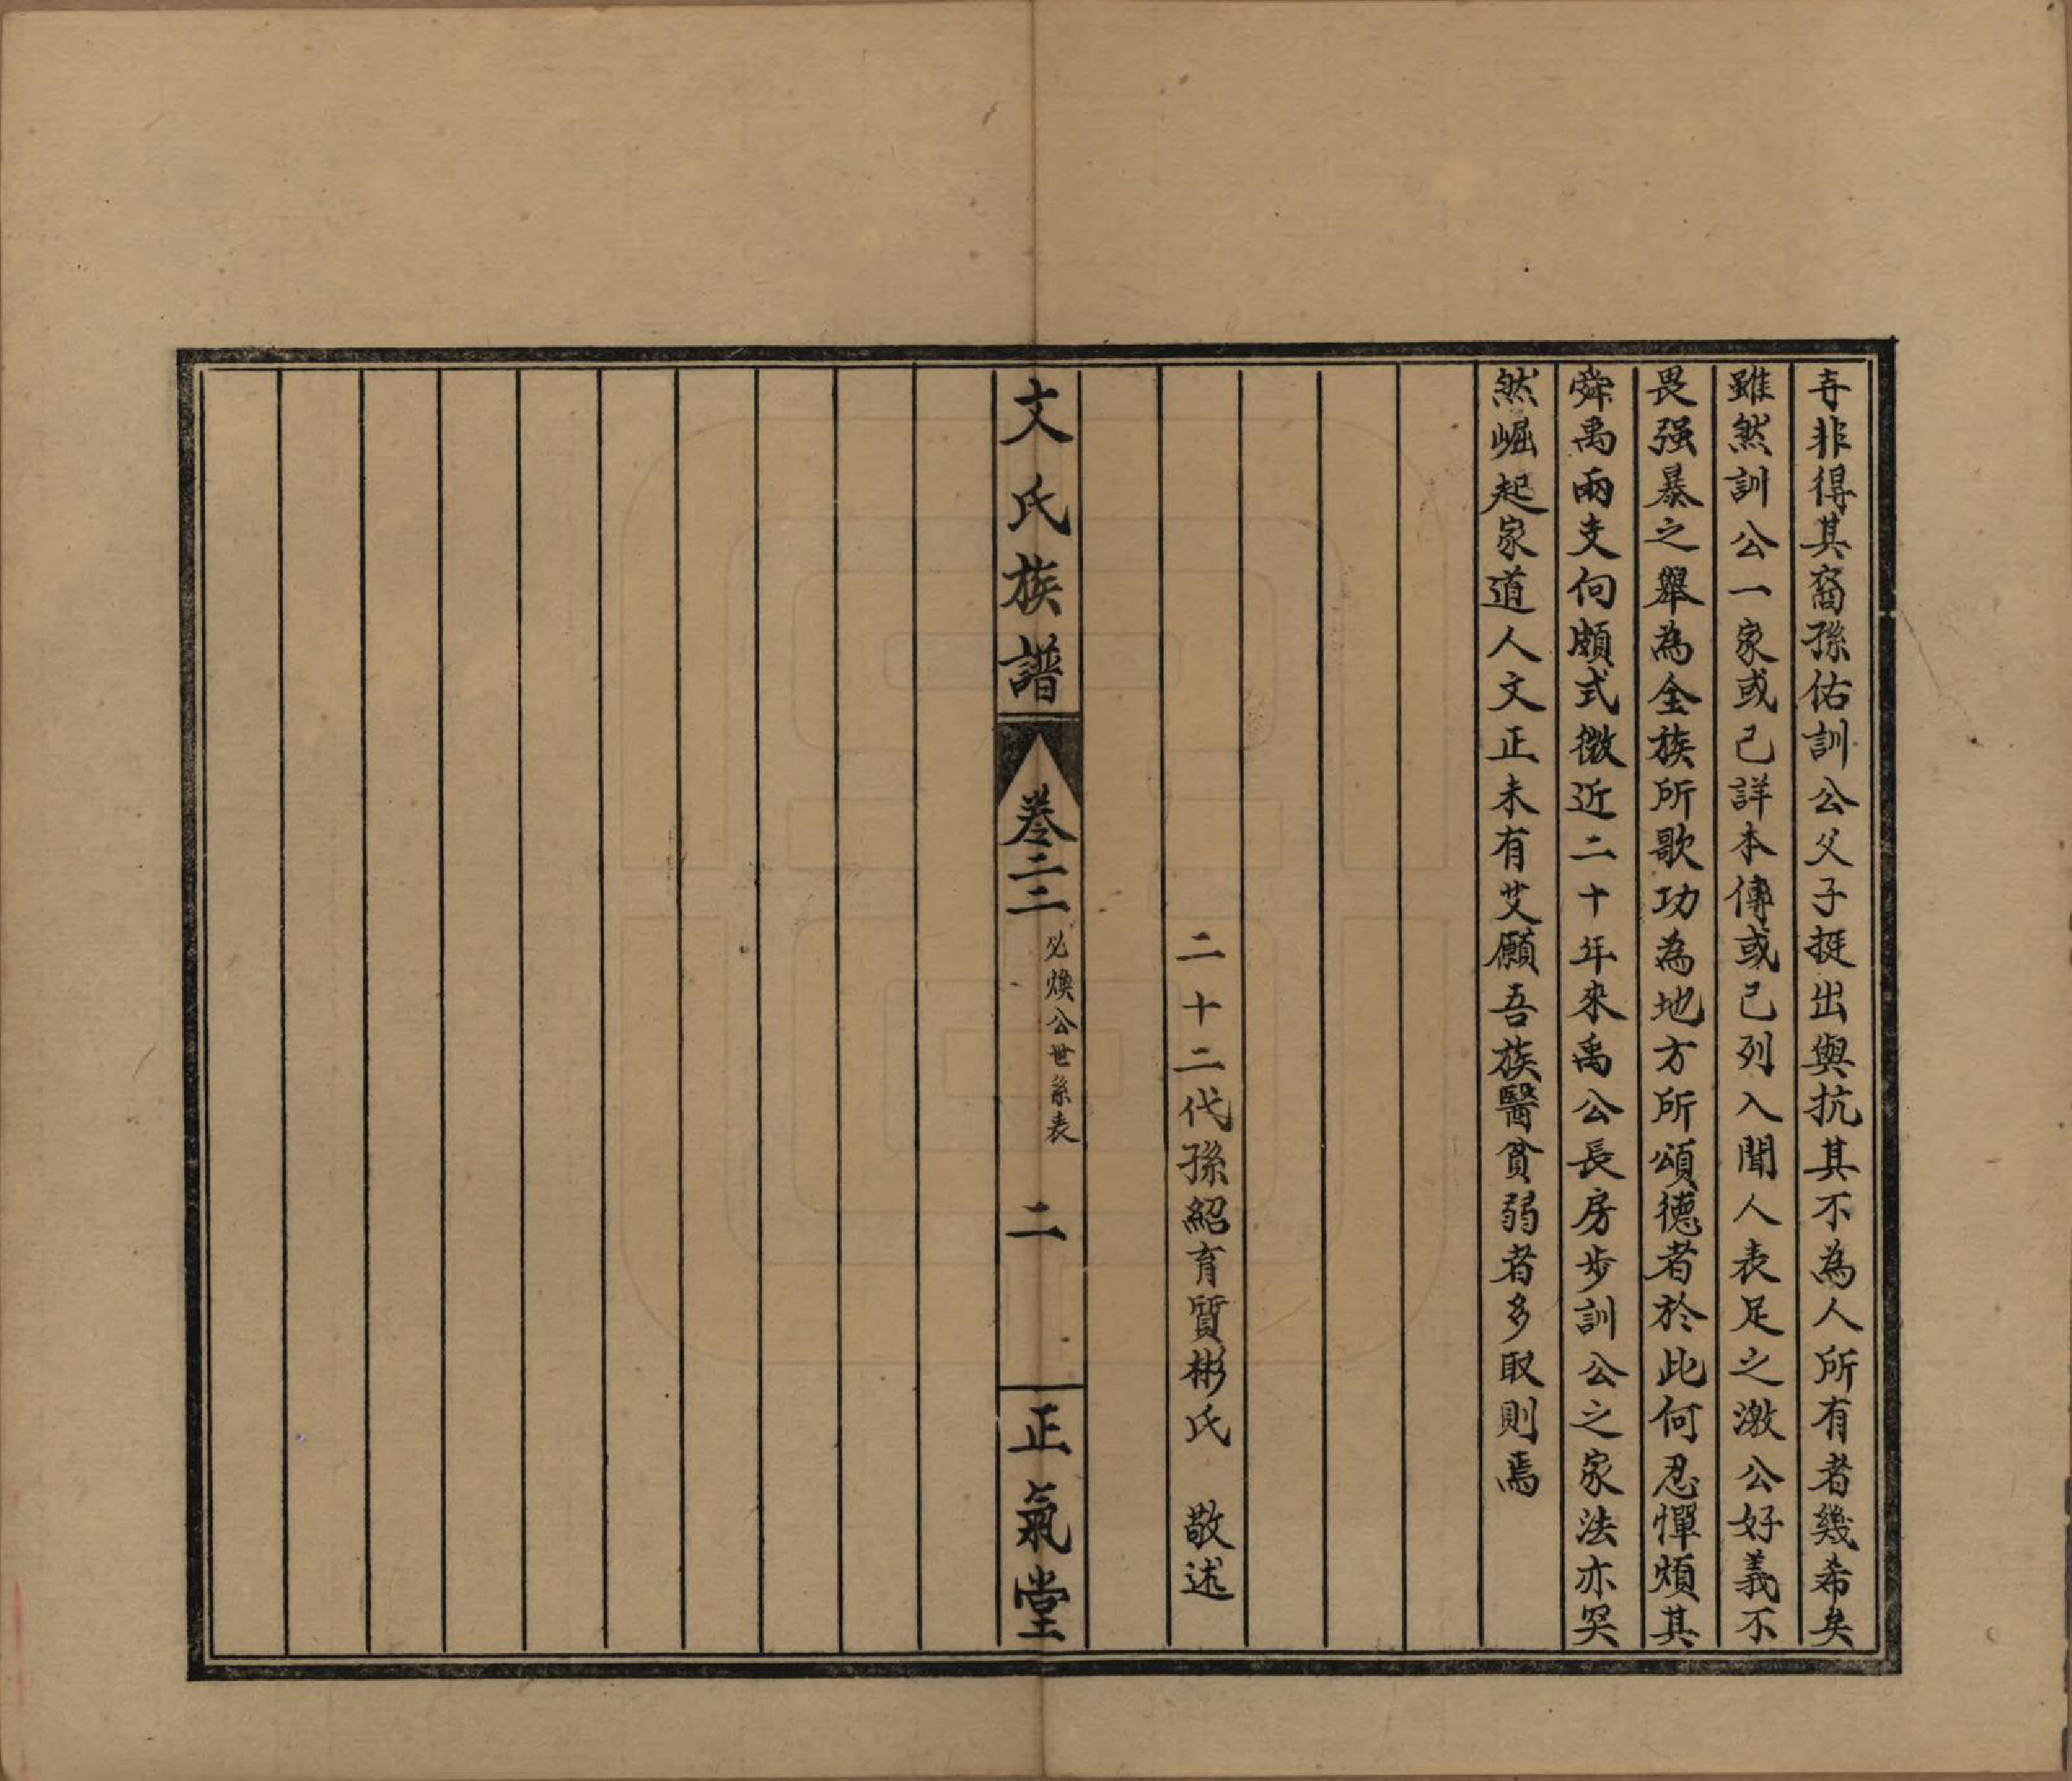 寺非得其裔孫佑訓公父子挺出與抗其不為人所有者幾希矣
雖然訓公一家或已詳本傳或已列入聞人表足之激公好義不
畏强暴之舉為全族所歌功為地方所頌德者於此何忍憚煩其
舜禹兩支向頗式微近二十年來禹公長房步訓公之家法亦突
然崛起家道人文正未有艾願吾族醫貧弱者多取則焉
二十二代孫紹育質彬氏 敬述
文氏族譜
卷二二
必煥公世系表
二
正氣堂